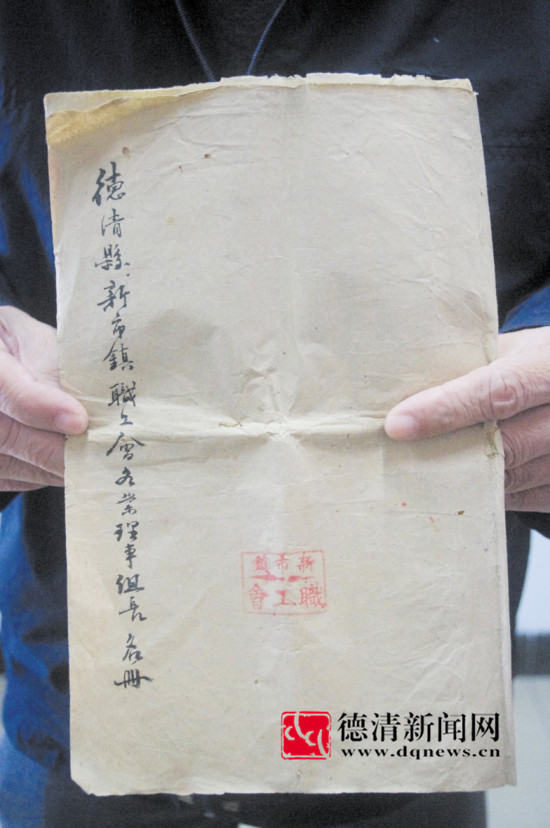 德清縣新市鎮職工會各業理事組長名册
新市鎮
職工會
德清新闻网
www.dqnews.cn